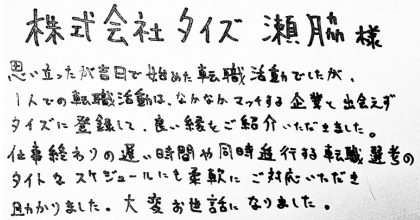 株式会社タイズ 瀬脇 様
思い立ったが吉日で始めた転職活動でしたが、
1人での転職活動は、なかなかマッチする企業と出会えず
タイズに登録して、良い縁をご紹介いただきました。
仕事終わりの遅い時間や同時進行する転職選考の
タイトなスケジュールにも柔軟にご対応いただき
助かりました。大変お世話になりました。